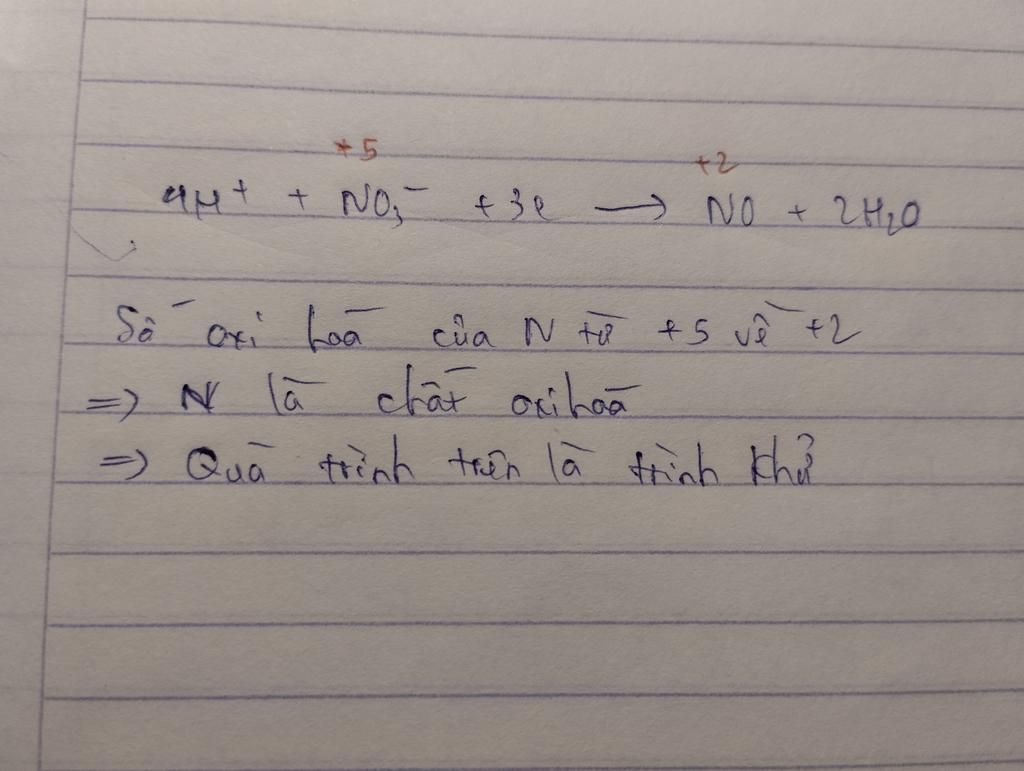 +5 +2
4H⁺ + NO₃⁻ + 3e ⟶ NO + 2H₂O
Số oxi hoá của N từ +5 về +2
=> N là chất oxi hoá
=> Quá trình trên là trình khử